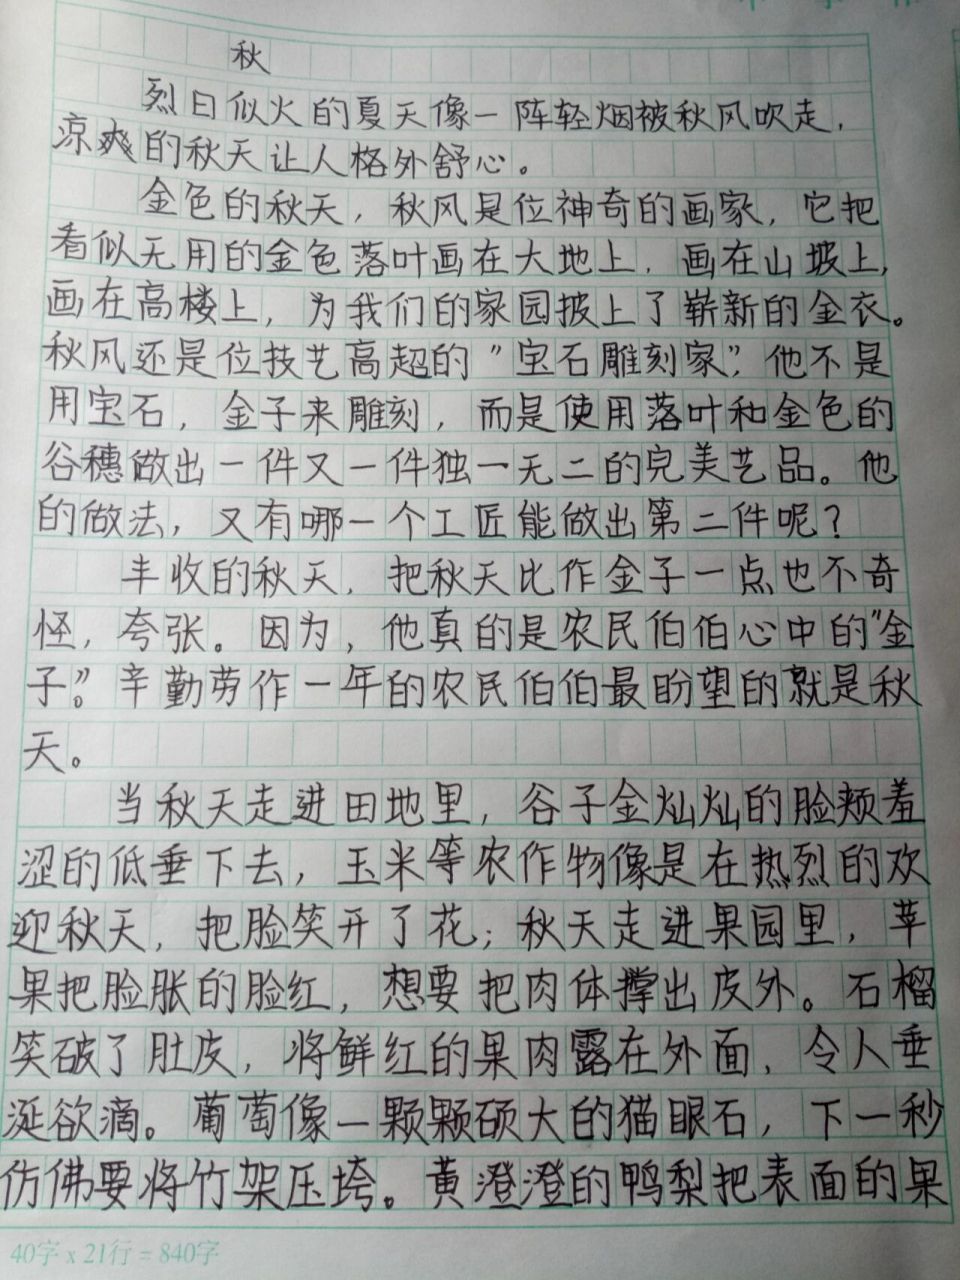 秋
烈日似火的夏天像一阵轻烟被秋风吹走，
凉爽的秋天让人格外舒心。
金色的秋天，秋风是位神奇的画家，它把
看似无用的金色落叶画在大地上，画在山坡上，
画在高楼上，为我们的家园披上了崭新的金衣。
秋风还是位技艺高超的“宝石雕刻家”，他不是
用宝石，金子来雕刻，而是使用落叶和金色的
谷穗做出一件又一件独一无二的完美艺品。他
的做法，又有哪一个工匠能做出第二件呢？
丰收的秋天，把秋天比作金子一点也不奇
怪，夸张。因为，他真的是农民伯伯心中的“金
子”。辛勤劳作一年的农民伯伯最盼望的就是秋
天。
当秋天走进田地里，谷子金灿灿的脸颊羞
涩的低垂下去，玉米等农作物像是在热烈的欢
迎秋天，把脸笑开了花；秋天走进果园里，苹
果把脸胀的脸红，想要把肉体撑出皮外。石榴
笑破了肚皮，将鲜红的果肉露在外面，令人垂
涎欲滴。葡萄像一颗颗硕大的猫眼石，下一秒
仿佛要将竹架压垮。黄澄澄的鸭梨把表面的果
40字 x 21行 = 840字